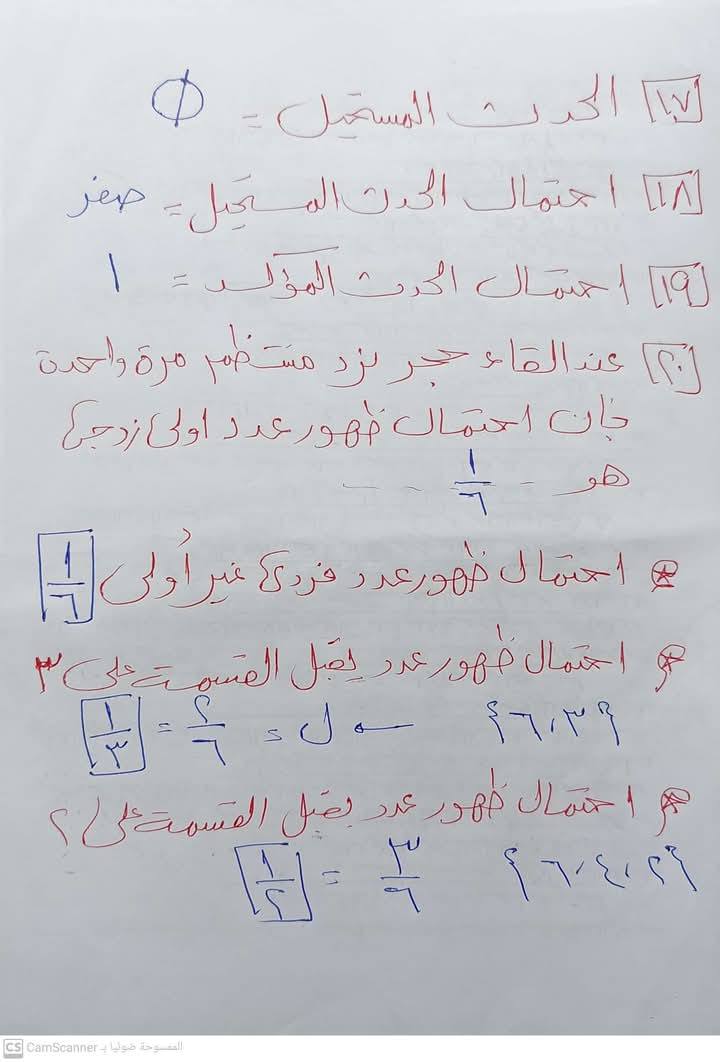 [١٧] الحدث المستحيل = Ø
[١٨] احتمال الحدث المستحيل = صفر
[١٩] احتمال الحدث المؤكد = ١
[٢٠] عند القاء حجر نرد منتظم مرة واحدة
فإن احتمال ظهور عدد اولى زوجى
هو -- ١/٦ ---
* احتمال ظهور عدد فردى غير أولى ١/٦
* احتمال ظهور عدد يقبل القسمة على ٣
{٣، ٦} ← ل = ٢/٦ = ١/٣
* احتمال ظهور عدد يقبل القسمة على ٢
{٢، ٤، ٦} ٣/٦ = ١/٢
CS CamScanner الممسوحة ضوئيا بـ